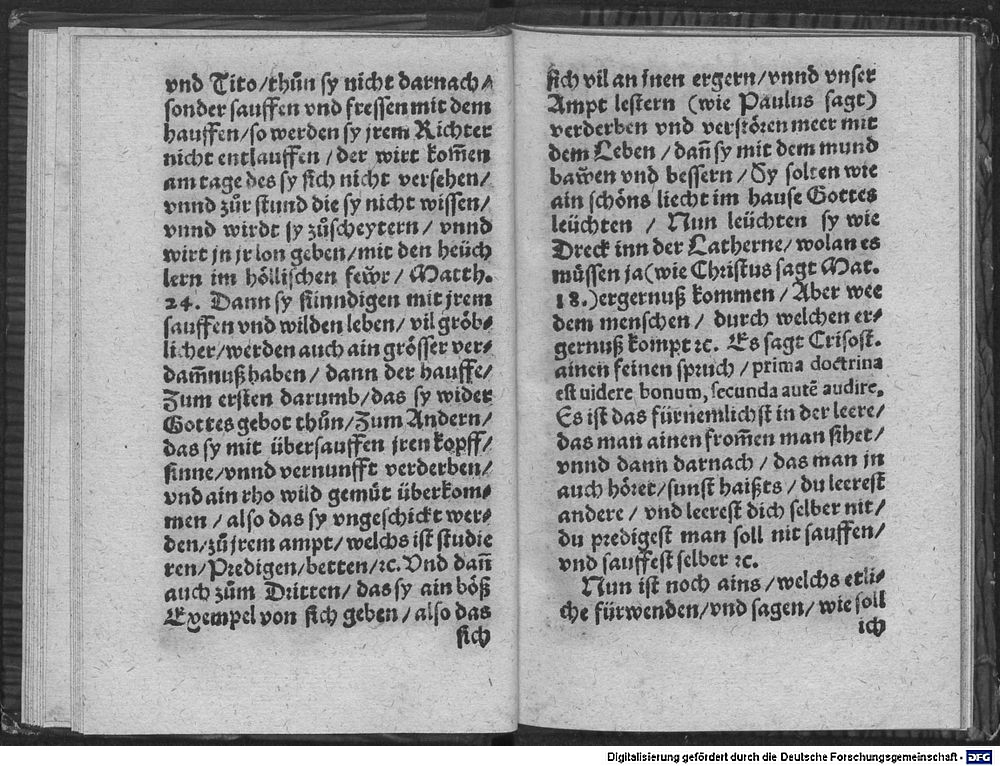 vnd Tito/thůn sy nicht darnach/
sonder sauffen vnd fressen mit dem
hauffen/so werden sy jrem Richter
nicht entlauffen/der wirt kom̃en
am tage des sy sich nicht versehen/
vnnd zůr stund die sy nicht wissen/
vnnd wirdt sy zůscheytern/vnnd
wirt jn jr lon geben/mit den heüch
lern im höllischen fewr/Matth.
24. Dann sy sünndigen mit jrem
sauffen vnd wilden leben/vil gröb⸗
licher/werden auch ain grösser ver⸗
dam̃nuß haben/dann der hauffe/
Zum ersten darumb/das sy wider
Gottes gebot thůn/Zum Andern/
das sy mit übersauffen jren kopff/
sinne/vnnd vernunfft verderben/
vnd ain rho wild gemüt überkom⸗
men/also das sy vngeschickt wer⸗
den/zů jrem ampt/welchs ist studie
ren/Predigen/betten/ꝛc. Vnd dañ
auch zům Dritten/das sy ain böß
Exempel von sich geben/also das
sich
sich vil an jnen ergern/vnnd vnser
Ampt lestern (wie Paulus sagt)
verderben vnd verstören meer mit
dem Leben/dañ sy mit dem mund
bawen vnd bessern/Sy solten wie
ain schöns liecht im hause Gottes
leüchten/Nun leüchten sy wie
Dreck inn der Latherne/wolan es
müssen ja(wie Christus sagt Mat.
18.)ergernuß kommen/Aber wee
dem menschen/durch welchen er⸗
gernuß kompt ꝛc. Es sagt Crisost.
ainen feinen spruch/prima doctrina
est uidere bonum, secunda autē audire.
Es ist das fürnemlichst in der leere/
das man ainen from̃en man sihet/
vnnd dann darnach/das man jn
auch höret/sunst haißts/du leerest
andere/vnd leerest dich selber nit/
du predigest man soll nit sauffen/
vnd sauffest selber ꝛc.
Nun ist noch ains/welchs etli⸗
che fürwenden/vnd sagen/wie soll
ich
Digitalisierung gefördert durch die Deutsche Forschungsgemeinschaft - DFG